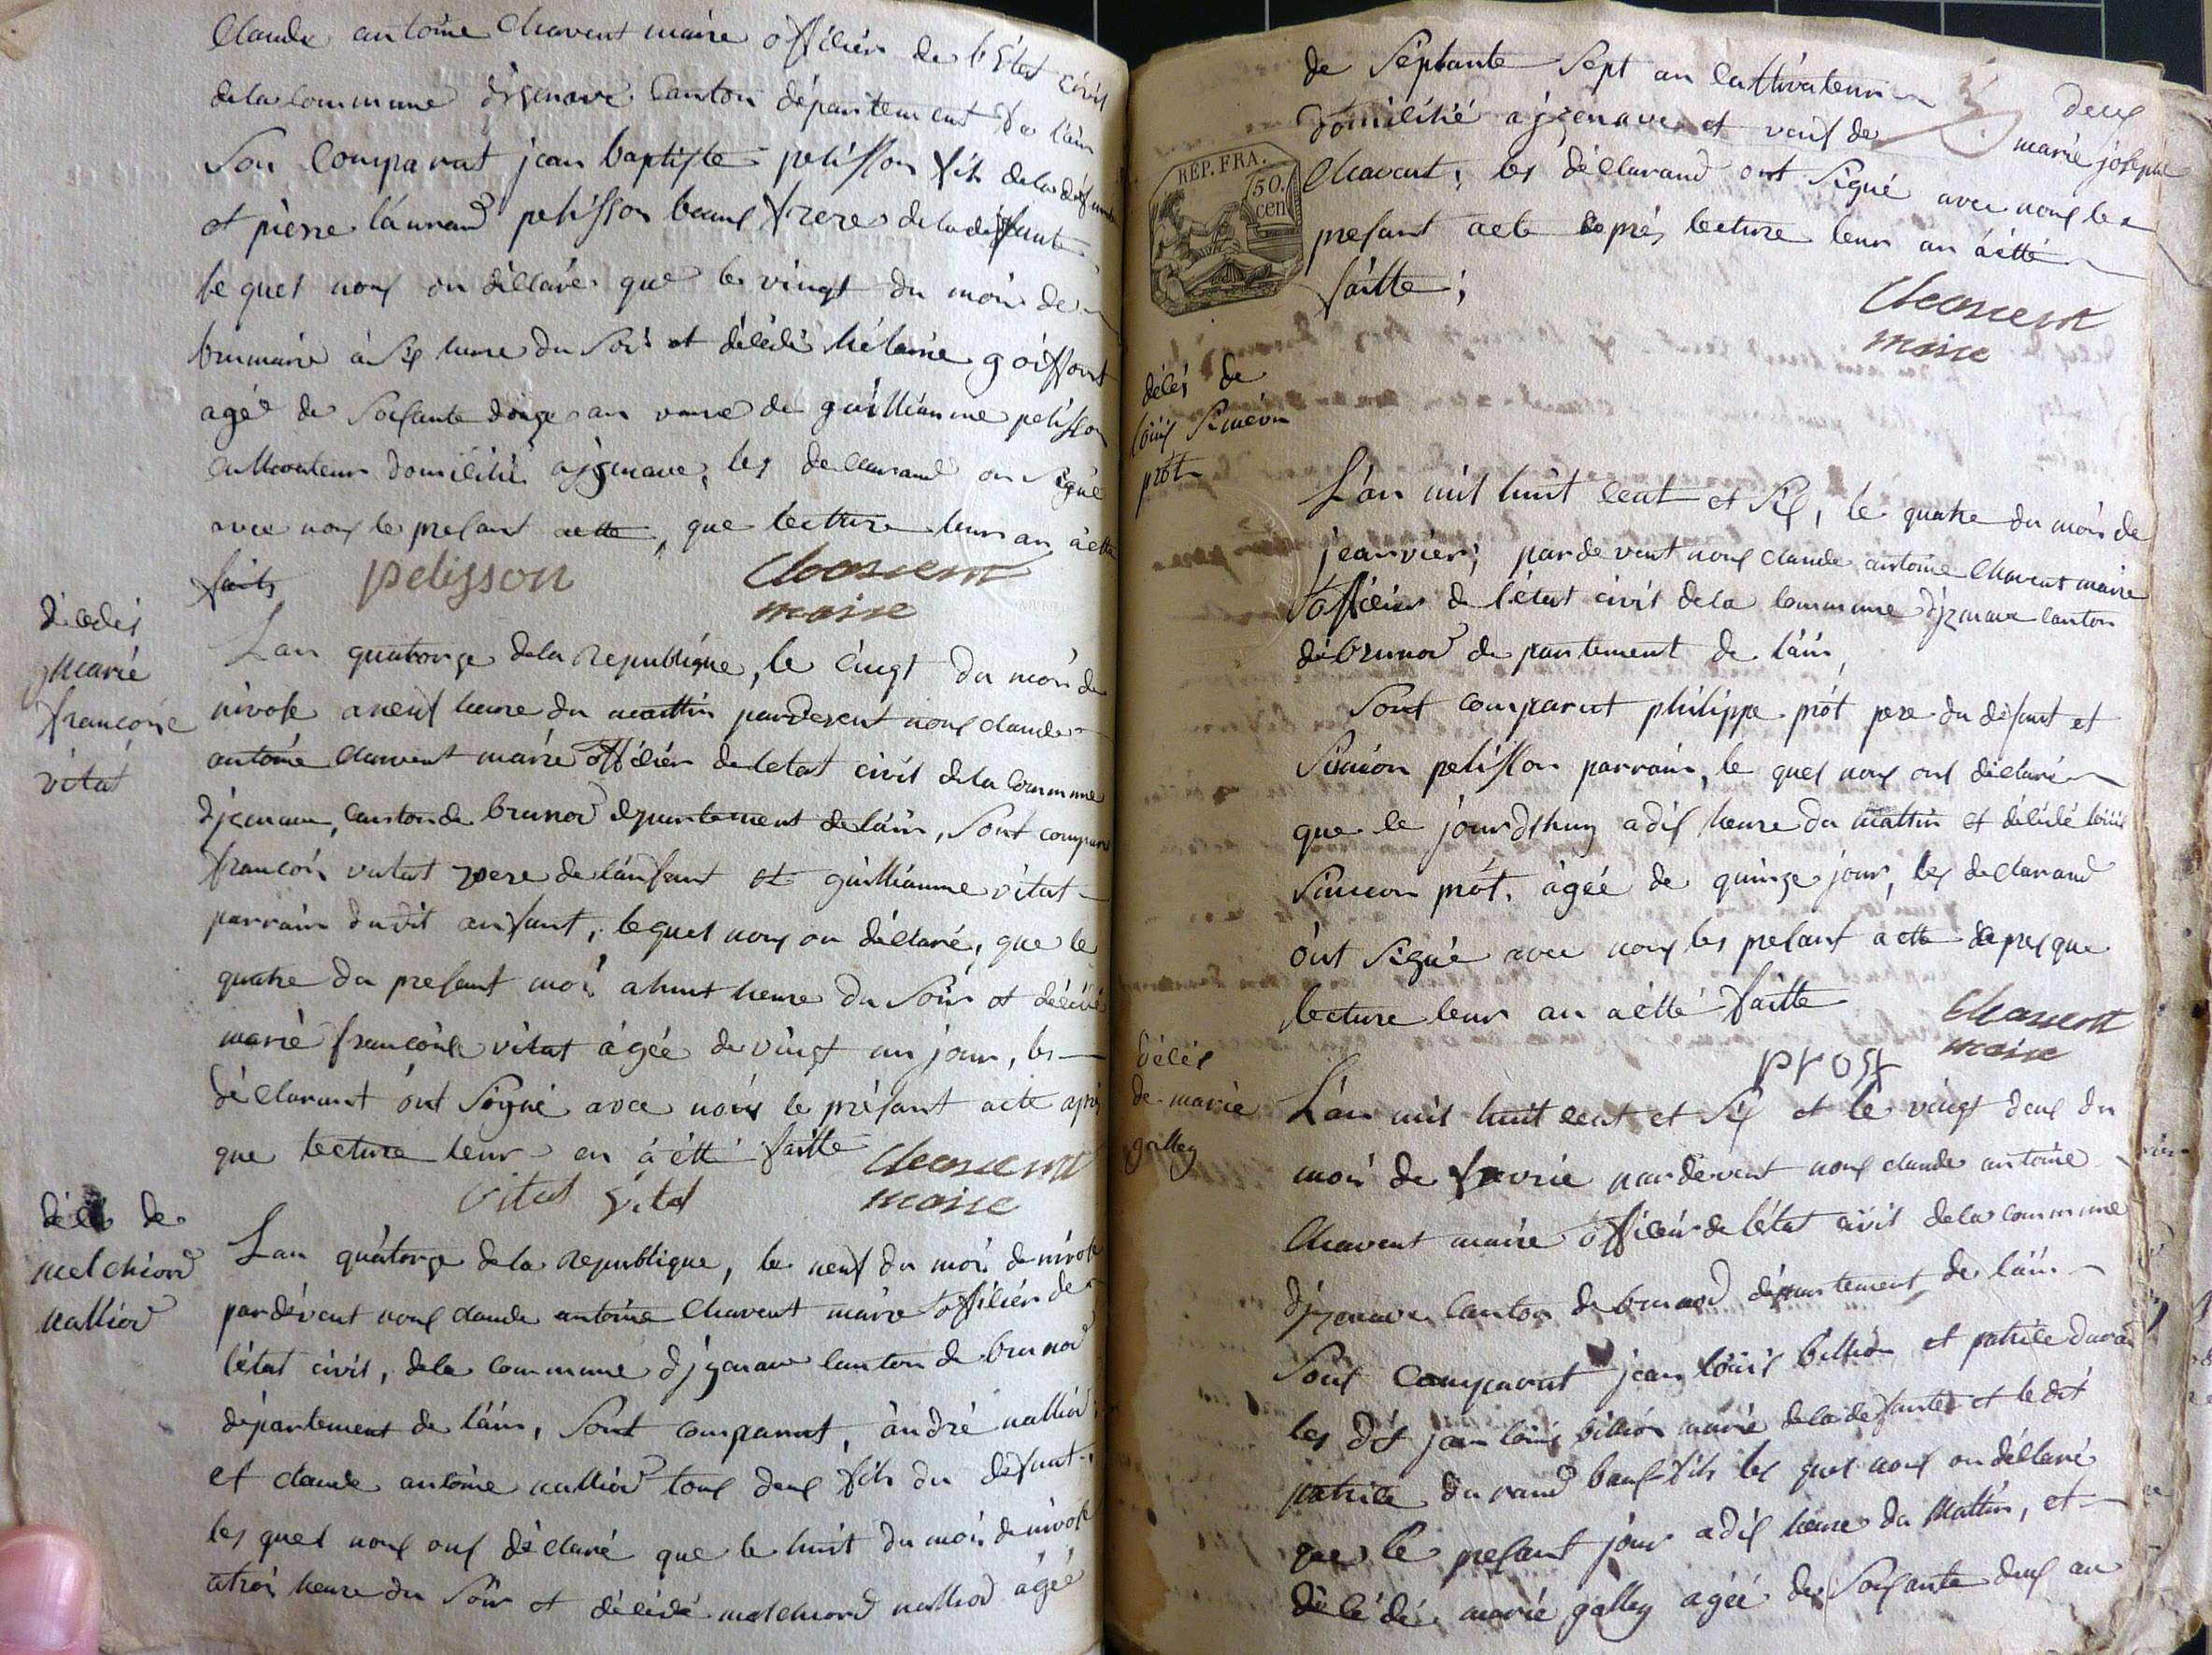 Claude antoine Chavent maire officier de l'Etat civil
de la Commune d'izenave Canton département de l'ain
Son Comparut jean baptiste pelisson fils de la défunte
et pierre laurand pelisson beauf frere de la defunte
lequel nous on déclaré que le vingt du mois de
brumaire à Six heure du Soir et décédé hélaine goiffont
agée de Soisante douze an veuve de guilliaume pelisson
cultivateur domicilié a izenave, les declarand on Signé
avec nous le presant acte, que lecture leur an à été
faite pelisson Chavent
maire
décedés
marie
francoise
vitat
Lan quatorze de la Republique, le cinqt du mois de
nivose a neuf heure du mattin pardevent nous claude
antoine chavent maire officier de letat civil de la commune
d'jzenave, canton de brenod département de láin, Sont comparu
francois vitat pere de lánfant et guilliaume vitat
parrain dudit anfant, lequel nous on déclaré, que le
quatre du presant mois a huit heure du Soir et décédé
marie francoise vitat agée de vingt un jour, les
déclarant ont Signé avec nous le présant acte après
que lecture leur en à été faitte Chavent
vitat vitat maire
décés de
melchiord
nalliod
Lan quátorze de la Republique, le neuf du mois de nivose
pardévent nous claude antoine Chavent maire officier de
létat civil, de la commune d'jzenave canton de brenod
département de láin, Sont comparut, àndré nalliod
et claude antoine nalliod tous deux fils du défunt,
les quel nous ont déclaré que le huit du mois de nivose
atrois heure du Soir et décédé melchiord nalliod agée
de Séptante Sept an Cultivateur
deux
domicilié a jzenave et veuf de marie joseph
REP. FRA.
50.
cen
Chavent, les déclarand ont Signé avec nous le
presant acte après lecture leur an à été
faitte;
Chavent
maire
décés de
loüis Siméon
prôt
L'an mil huit cent et Six, le quatre du mois de
jeanvier, pardevent nous claude antoine Chavent maire
officier de l'état civil de la Commune d'jzenave canton
de brenod departement de láin,
Sont comparut philippe prôt pere du défunt et
Siméon pelisson parrain, le quel nous ont déclaré
que le jourd'huy a dix heure du mattin et décédé loüis
Simeon prôt, ágée de quinze jour, les declarand
ònt Signé avec nous les presant acte apres que
lecture leur an aété faitte Chavent
prost maire
décés
de marie
galley
L'an mil huit cent et Six et le vingt deux du
mois de fevrie pardevent nous claude antoine
Chavent maire officier de l'état civil de la commune
d'jzenave Canton de brenod département de láin
Sont Comparut jean loüis billion et patrice durand
les dit jean loüis billion marie de la defunte et le dit
patrice durand bauf fils les quel nous on déclaré
que le presant jour a dix heure du Mattin, et
décédé marie galley agée de Soisante deux an